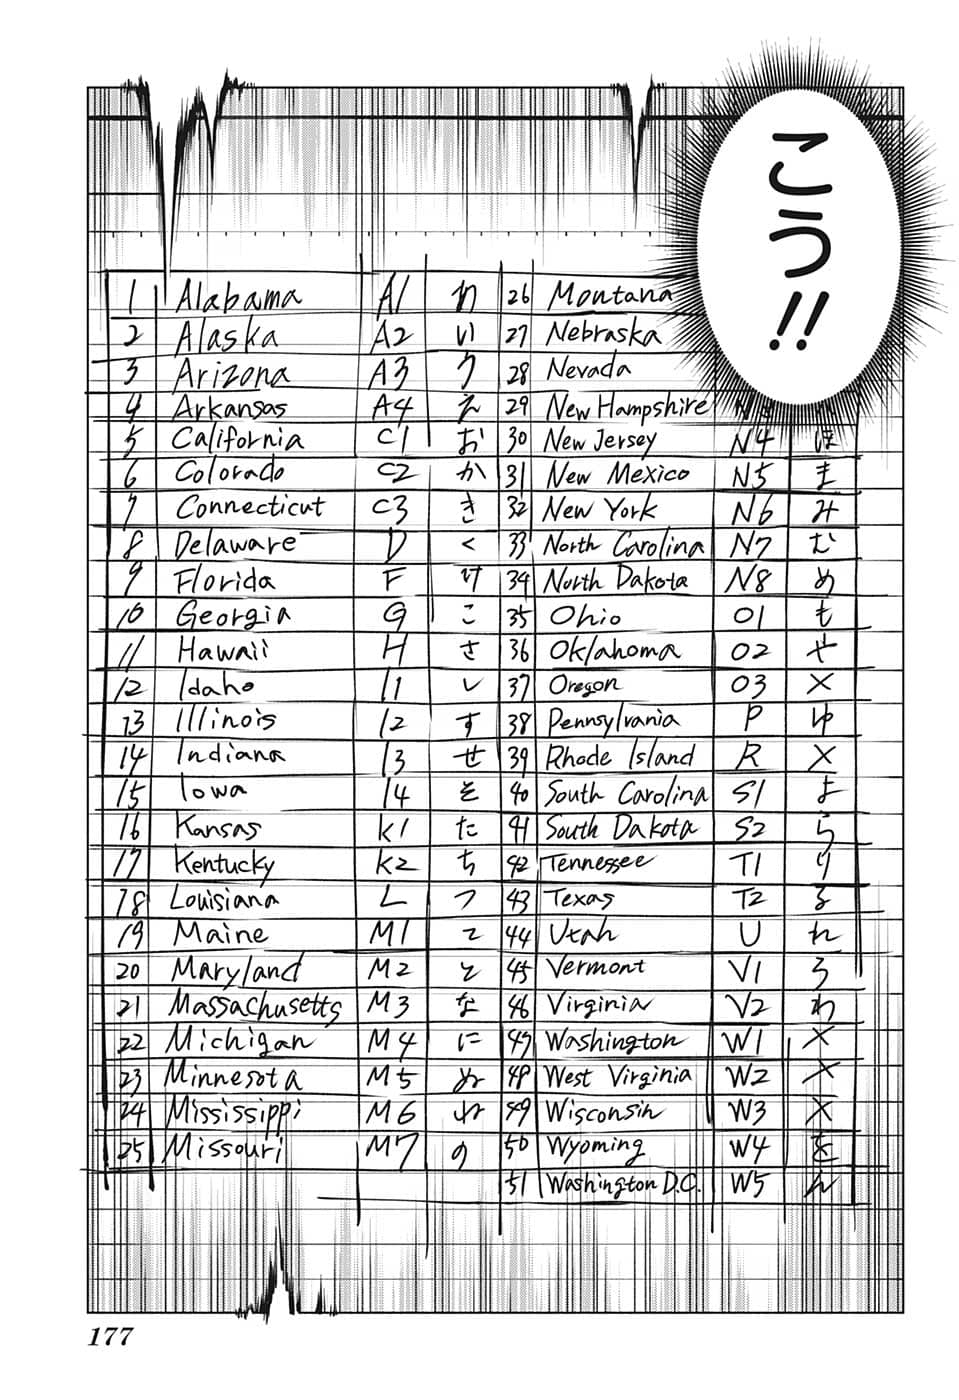 こう!!
1 Alabama A1 あ 26 Montana
2 Alaska A2 い 27 Nebraska
3 Arizona A3 う 28 Nevada
4 Arkansas A4 え 29 New Hampshire
5 California C1 お 30 New Jersey N4 ほ
6 Colorado C2 か 31 New Mexico N5 ま
7 Connecticut C3 き 32 New York N6 み
8 Delaware D く 33 North Carolina N7 む
9 Florida F け 34 North Dakota N8 め
10 Georgia G こ 35 Ohio O1 も
11 Hawaii H さ 36 Oklahoma O2 や
12 Idaho I1 し 37 Oregon O3 ×
13 Illinois I2 す 38 Pennsylvania P ゆ
14 Indiana I3 せ 39 Rhode Island R ×
15 Iowa I4 そ 40 South Carolina S1 よ
16 Kansas K1 た 41 South Dakota S2 ら
17 Kentucky K2 ち 42 Tennessee T1 り
18 Louisiana L つ 43 Texas T2 る
19 Maine M1 て 44 Utah U れ
20 Maryland M2 と 45 Vermont V1 ろ
21 Massachusetts M3 な 46 Virginia V2 わ
22 Michigan M4 に 47 Washington W1 ×
23 Minnesota M5 ぬ 48 West Virginia W2 ×
24 Mississippi M6 ね 49 Wisconsin W3 ×
25 Missouri M7 の 50 Wyoming W4 を
51 Washington D.C. W5 ん
177